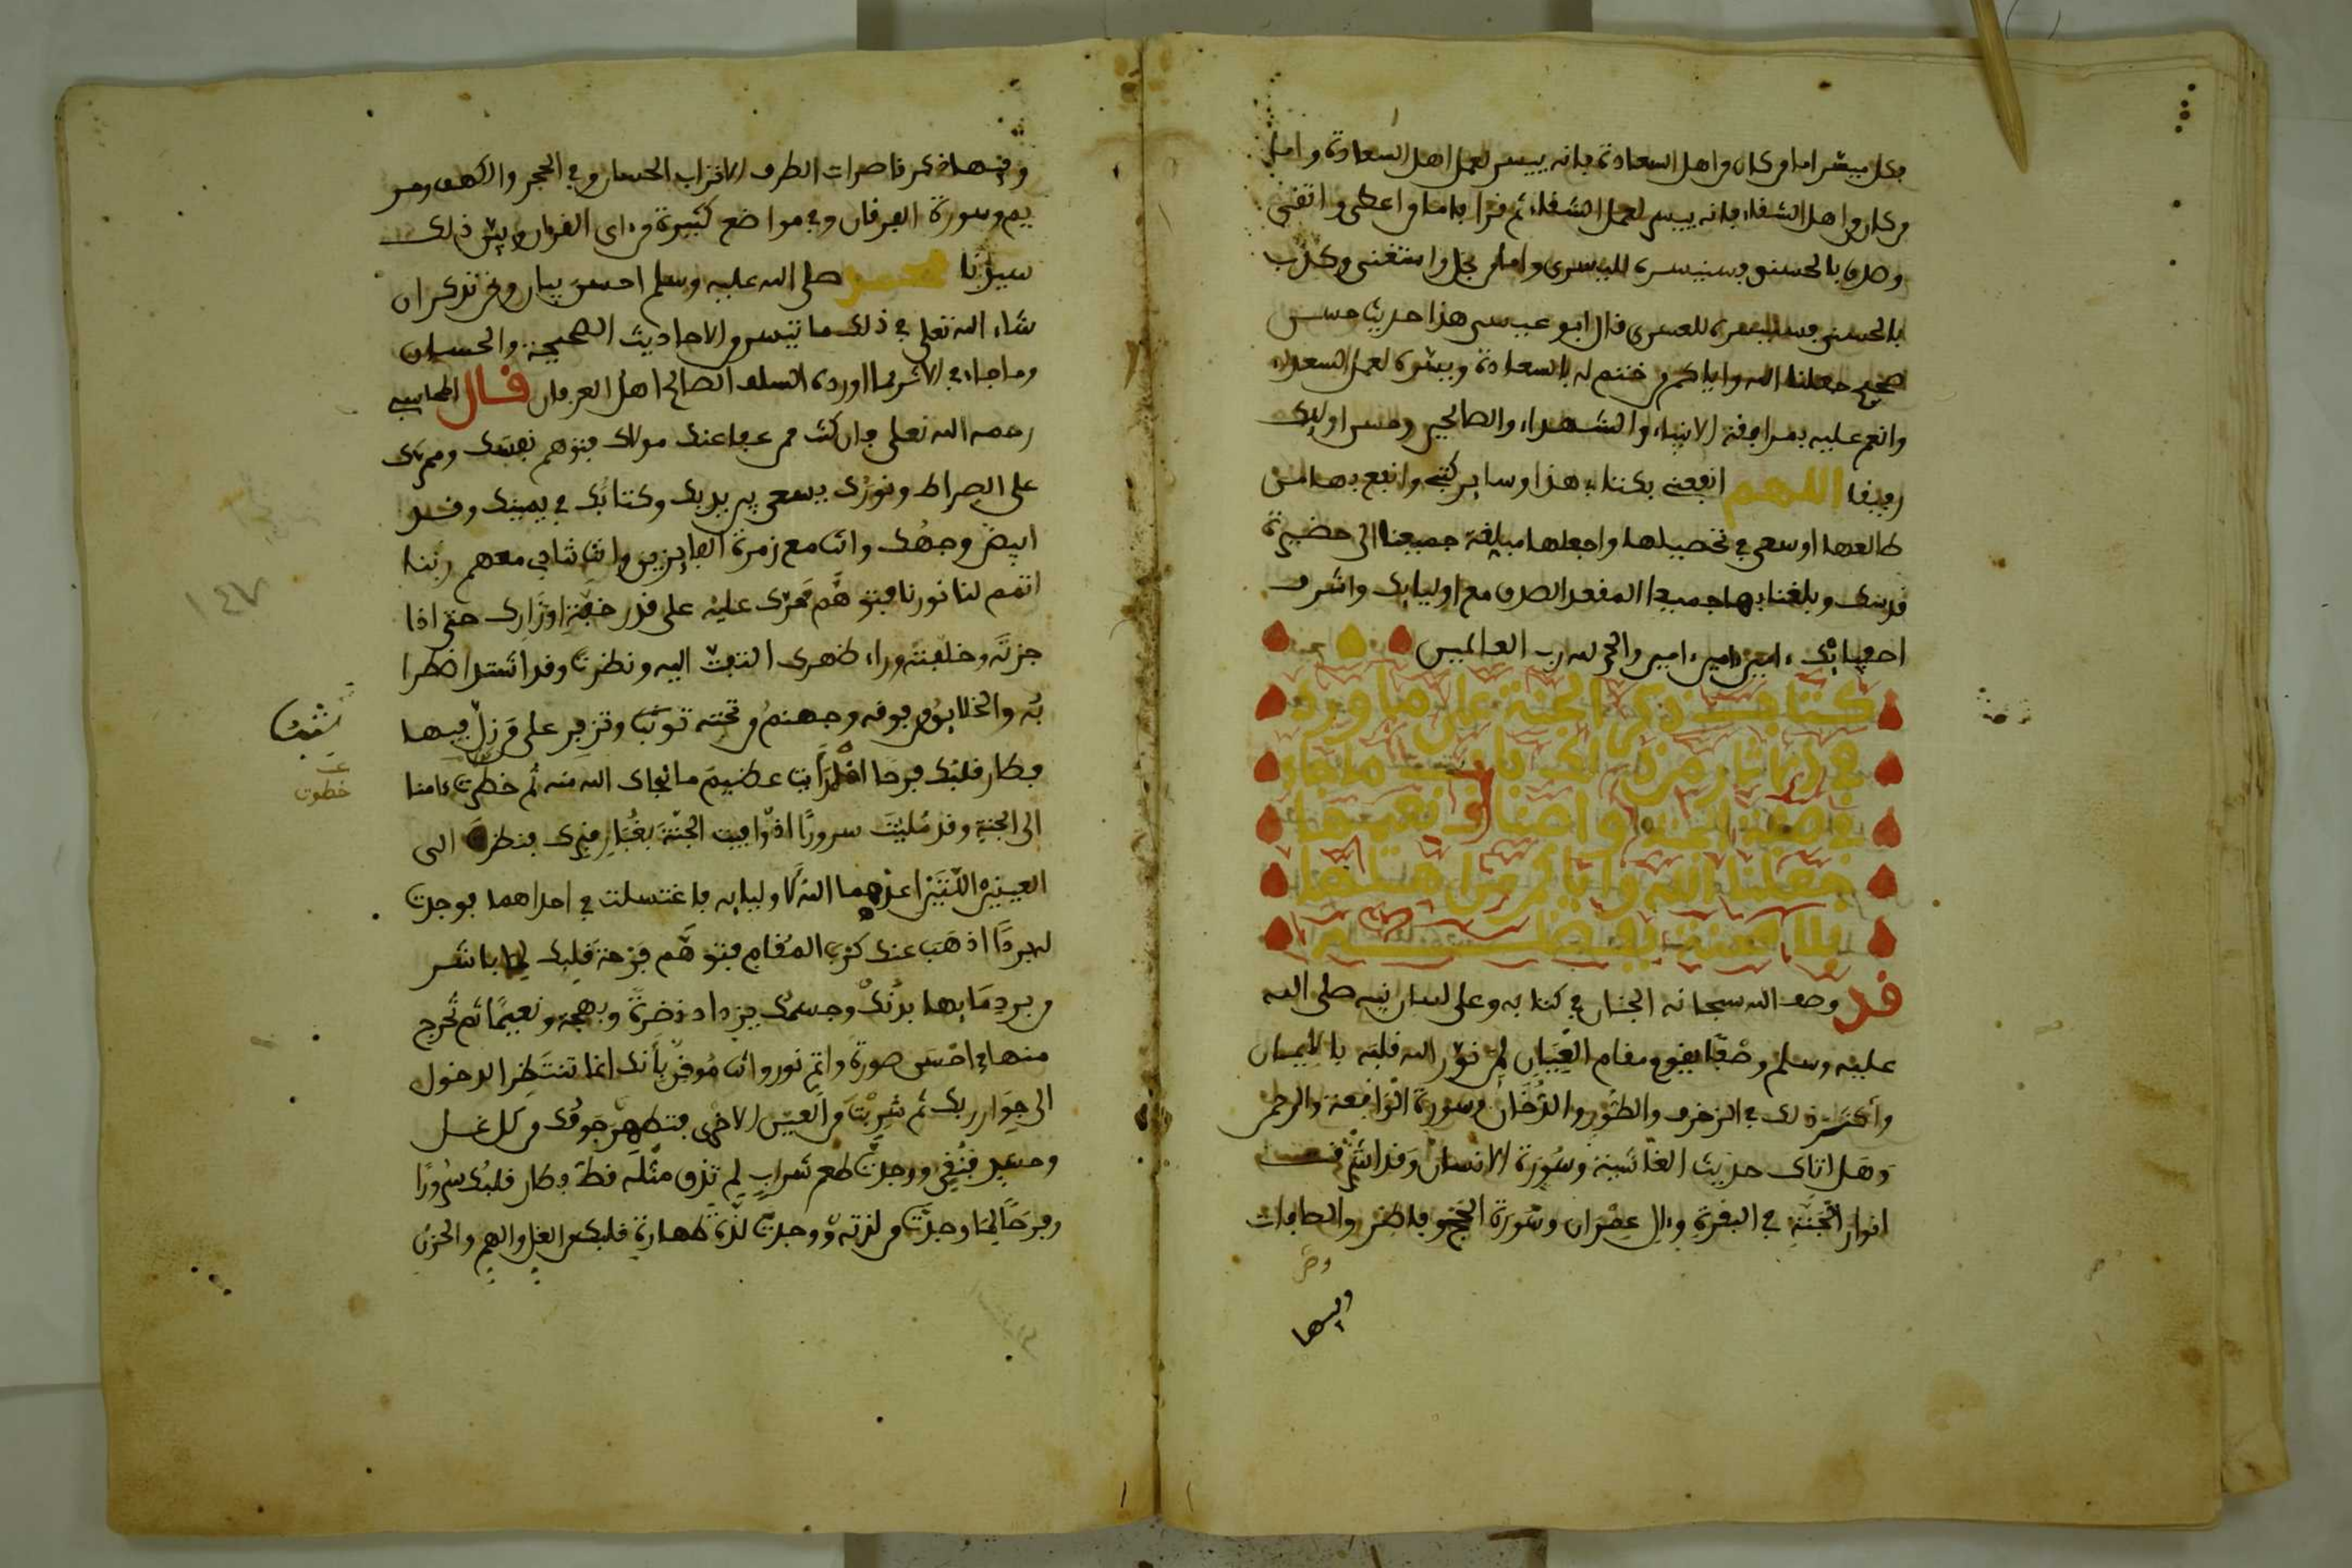 فكل ميسر اما من كان من اهل السعادة فانه ييسر لعمل اهل السعادة واما
من كان من اهل الشفاء فانه ييسر لعمل الشفاء ثم قرا فاما من اعطى واتقى
وصدق بالحسنى فسنيسره لليسرى واما من بخل واستغنى وكذب
بالحسنى فسنيسره للعسرى قال ابو عيسى هذا حديث حسن
صحيح جعلنا الله واياكم ممن ختم له بالسعادة ويسره لعمل السعداء
وانعم عليه بمرافقة الانبياء والشهداء والصالحين وحسن اوليك
رفيقا اللهم انفعني بكتابي هذا وساير كتبي وانفع بها من
طالعها او سعى في تحصيلها واجعلها مبلغة جميعنا الى حضيرة
قدسك وبلغنا بها جميعا المقعد الصدق مع اوليايك واشرف
اصفيايك ءامين ءامين ءامين والحمد لله رب العالمين
كتاب ذكر الجنة على ما ورد
في الاثار من ذكر باب ما جاء
في صفة الجنة واصناف نعيمها
جعلنا الله واياكم من اهلها
بلا محنة بفضله
قد وصف الله سبحانه الجنان في كتابه وعلى لسان نبيه صلى الله
عليه وسلم وصفا يقوم مقام العيان لمن نور الله قلبه بالايمان
واكثر ذلك في الزخرف والطور والدخان وسورة الواقعة والرحمن
وهل اتاك حديث الغاشية وسورة الانسان وقد اشرقت
انوار الجنة في البقرة وءال عمران وسورة الحج وفاطر والصافات
وص
وفيها
وفيها ذكر قاصرات الطرف الاتراب الحسان وفي الحجر والكهف ومر
يم وسورة الفرقان وفي مواضع كثيرة من ءاي القرءان وبين ذلك
سيدنا محمد صلى الله عليه وسلم احسن بيان ونحن نذكر ان
شاء الله تعلى في ذلك ما تيسر من الاحاديث الصحيحة والحسان
وما جاء في الاثر مما اورده السلف الصالح اهل العرفان قال المحاسبي
رحمه الله تعلى فان كنت ممن عفا عنك مولاك فتوهم نفسك وممرك
على الصراط ونورك يسعى بين يديك وكتابك في يمينك وقد
ابيض وجهك وانت مع زمرة الفايزين وانت تنادي معهم ربنا
اتمم لنا نورنا فتوهم ممرك عليه على قدر خفة اوزارك حتى اذا
جزته وخلفته وراء ظهرك التفت اليه ونظرت وقد اشتد اضطرا
به والخلايق من فوقه وجهنم من تحته تثب وتزفر على من زل فيها
فطار قلبك فرحا اذ رايت عظيم ما نجاك الله منه ثم خطوت ءامنا
الى الجنة وقد مليت سرورا اذ وافيت الجنة بغبار قبرك فنظرت الى
العينين اللتين اعدهما الله لاوليايه فاغتسلت في احداهما فوجدت
لبردها اذهب عنك كرب المقام فتوهم فرحة قلبك لما باشر
من برد مايها بدنك وجسمك يزداد نضرة وبهجة ونعيما ثم تخرج
منها في احسن صورة واتم نور وانت موقن بانك انما تنتظر الدخول
الى جوار ربك ثم شربت من العين الاخرى فتطهر جوفك من كل غسل
وحقد فنقي ووجدت طعم شراب لم تذق مثله قط فطار قلبك سرورا
وفرحا لما وجدت من لذته ووجدت لذة طهارة قلبك من الغل والهم والحزن
تثب
خطوت
١٤٧